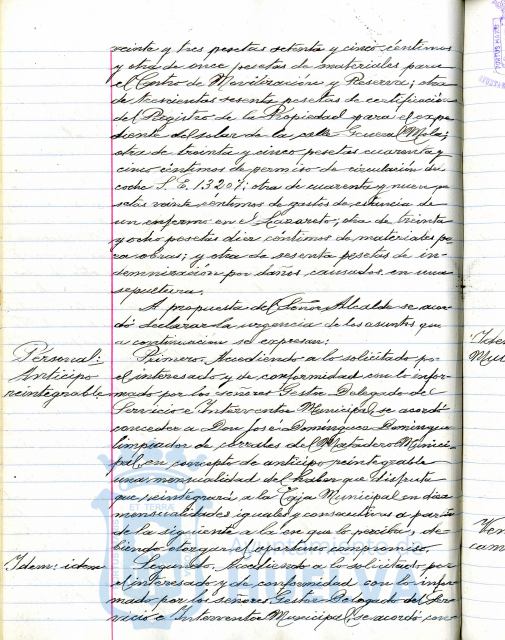 veinte y tres pesetas setenta y cinco céntimos
y otra de once pesetas de materiales para
el Centro de Movilización y Reserva; otra
de trescientas sesenta pesetas de certificación
del Registro de la Propiedad para el expe-
diente del solar de la calle General Mola;
otra de treinta y cinco pesetas cuarenta y
cinco céntimos de permiso de circulación del
coche S.E. 13207; otra de cuarenta y nueve pe-
setas veinte céntimos de gastos de estancia de
un enfermo en el Lazareto; otra de treinta
y ocho pesetas diez céntimos de materiales pa-
ra obras; y otra de sesenta pesetas de in-
demnización por daños causados en una
sepultura.
A propuesta del Señor Alcalde se acor-
dó declarar la urgencia de los asuntos que
a continuación se expresan:
Personal:
Anticipo
reintegrable
Primero. Accediendo a lo solicitado por
el interesado y de conformidad con lo infor-
mado por los señores Gestor Delegado del
Servicio e Interventor Municipal, se acordó
conceder a Don José Domínguez Domínguez
limpiador de corrales del Matadero Munici-
pal, en concepto de anticipo reintegrable
una mensualidad del haber que disfruta
que reintegrará a la Caja Municipal en diez
mensualidades iguales y consecutivas a partir
de la siguiente a la en que lo perciba, de-
biendo otorgar el oportuno compromiso.
Idem: idem
Segundo. Accediendo a lo solicitado por
el interesado y de conformidad con lo infor-
mado por los señores Gestor Delegado del Ser-
vicio e Interventor Municipal, se acordó con-
ET TERRA
Ayuntamiento de
HUELVA